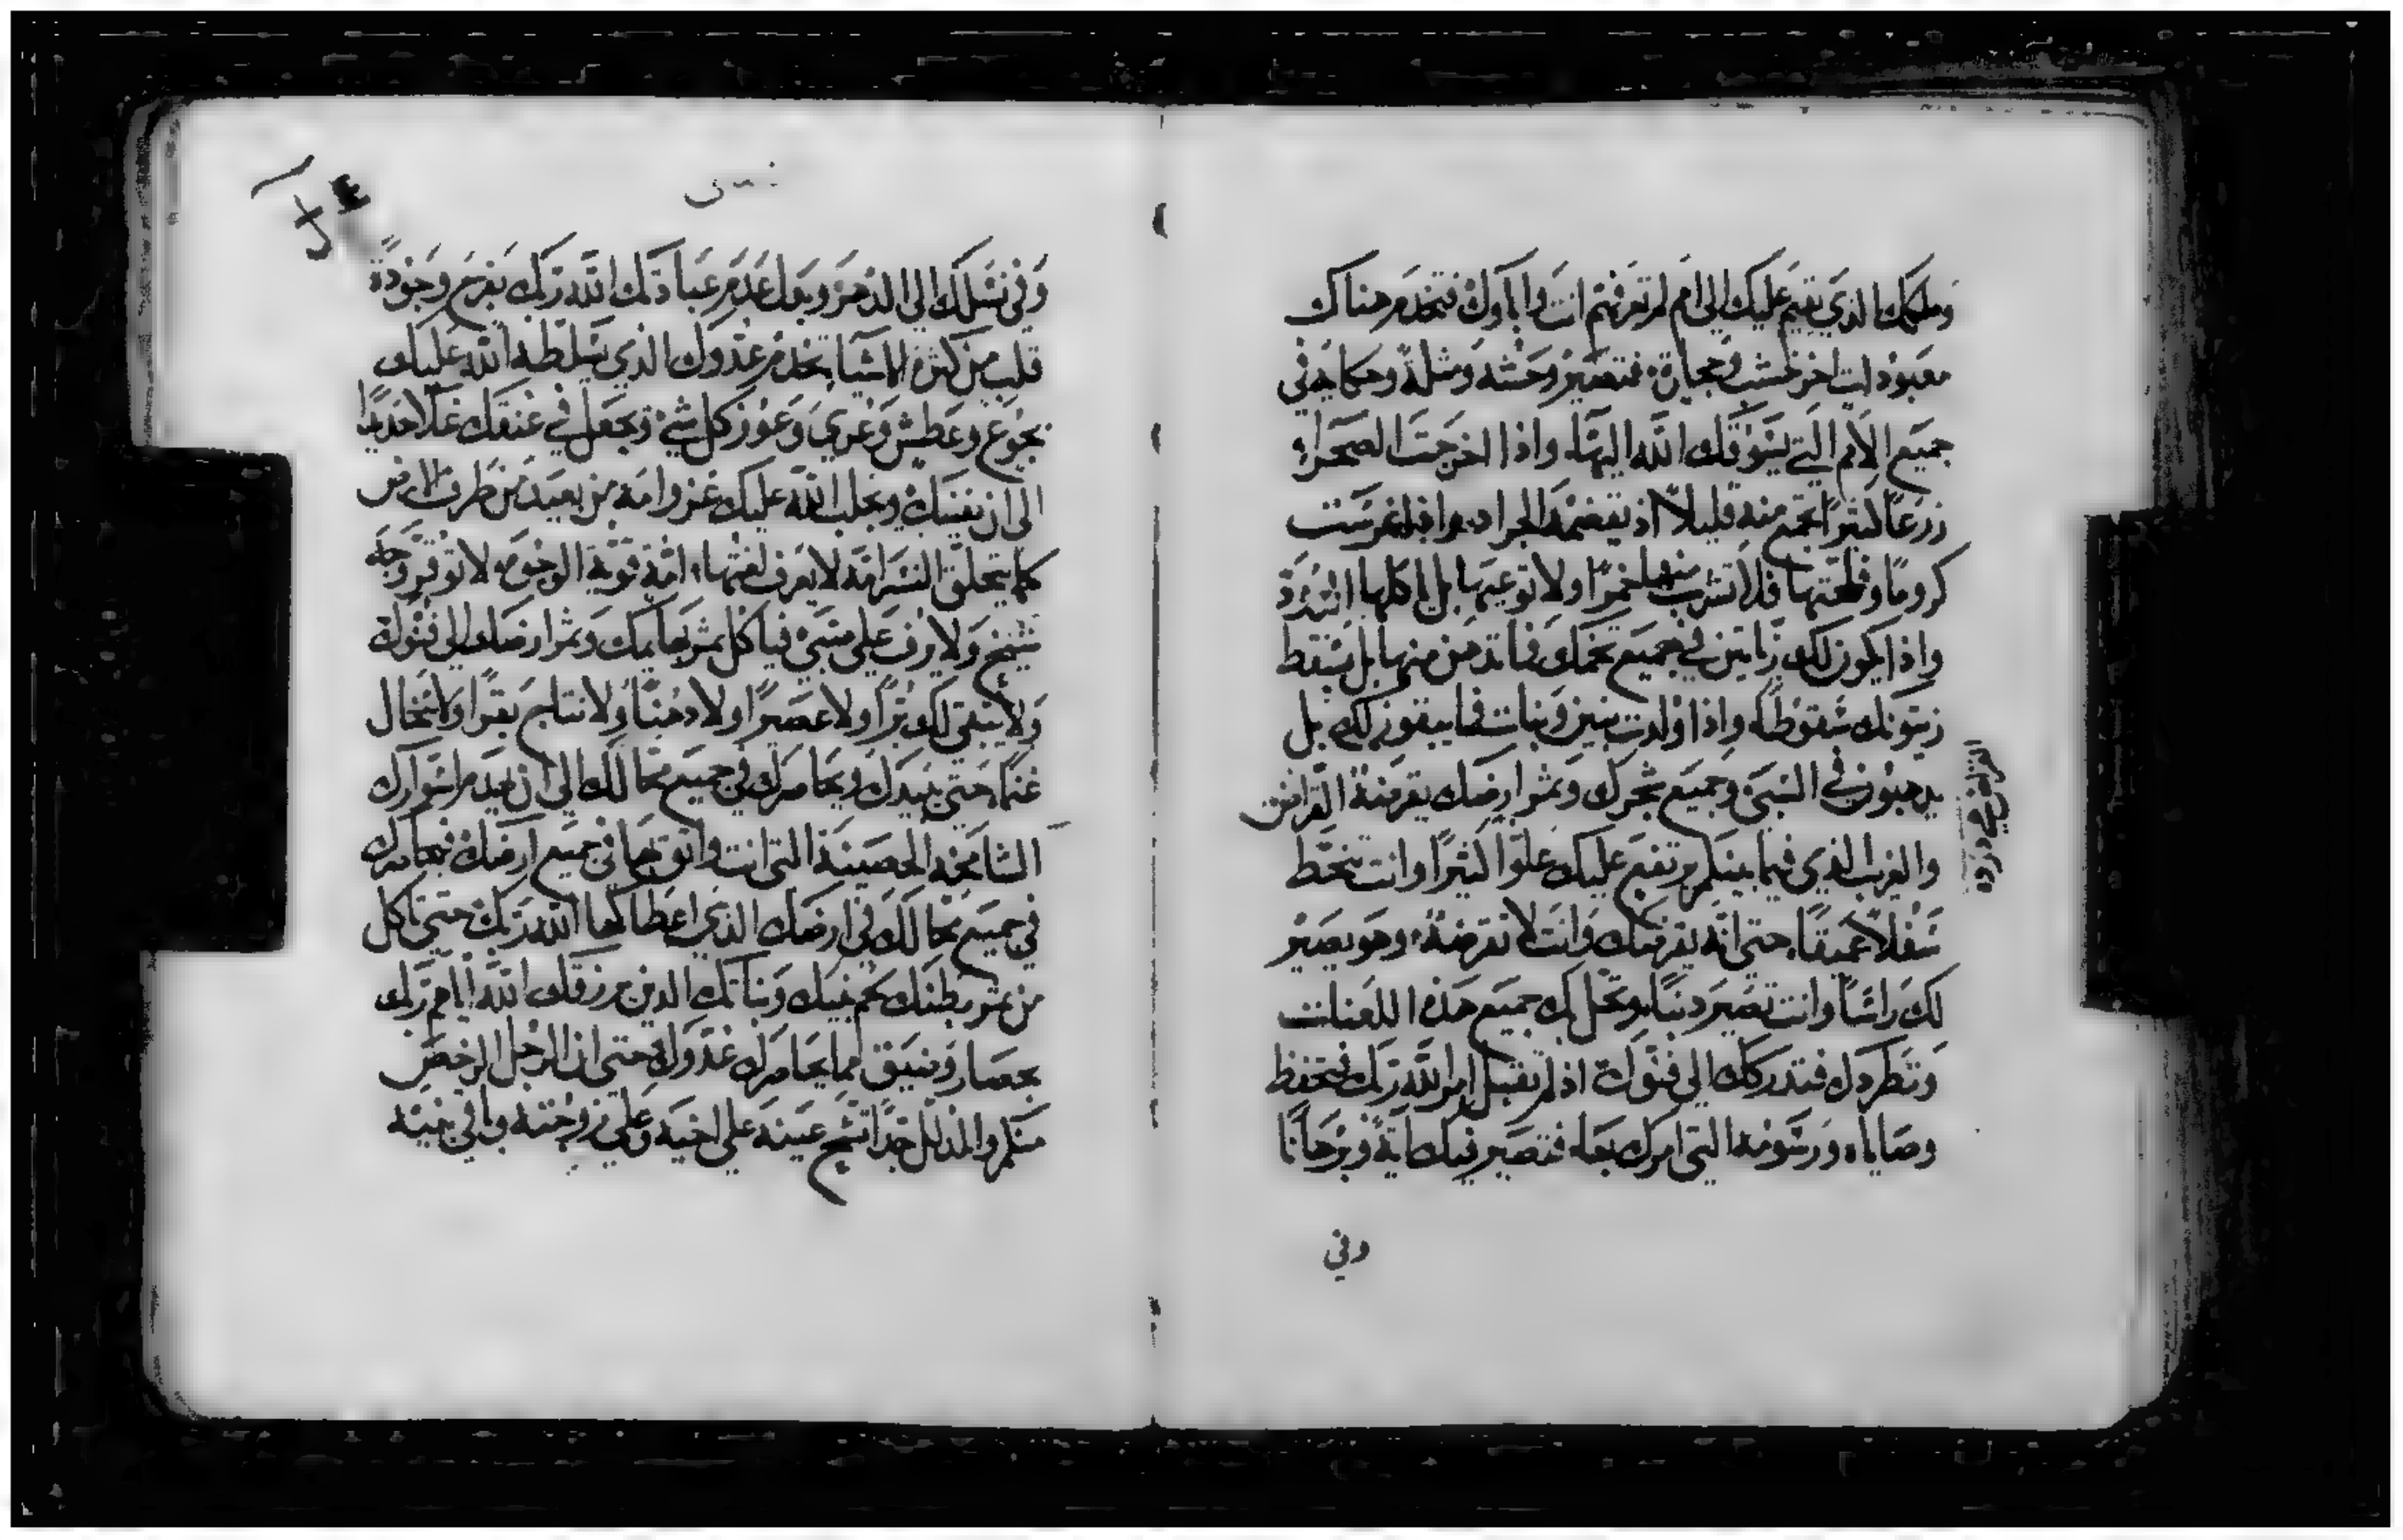 وملكك الذي تقيم عليك الي امم لم تعرفهم انت واباؤك فتخدم هناك
معبودات اخر خشب وحجاره فتصير وحشه ومثلة وحكايه في
جميع الامم التي يسوقك الله اليها واذا اخرجت الصحراء
زرعا كثيرا تجمع منه قليلا اذ يقضمه الجراد واذا غرست
كروما وفلحتها فلا تشرب منها خمرا ولا توعيها بل ياكلها الدودة
واذا يكون لك زياتين في جميع تخمك فما تدهن منها بل يسقط
زيتونك سقوطا واذا اولدت بنين وبنات فما يبقون لك بل
يدهبون في السبي وجميع شجرك وثمر ارضك يقرضه القراض
والغريب الذي فيما بينكم يرتفع عليك علوا كثيرا وانت تنحط
سفلا عميقا حتى انه يقرضك وانت لا تقرضه وهو يصير
لك راسا وانت تصير دنبا وتحل بك جميع هذه اللعنات
وتطردك فتدركك الي فنوك اذ لم تقبل امر الله ربك فتحفظ
وصاياه ورسومه التي امرك بها فتصير فيك اية وبرهانا
وفي
وفي نسلك الي الدهر وبدل عدم عبادتك الله ربك بفرح وجودة
قلب من كثرة الاشيا تخدم عدوك الذي يسلطه الله عليك
بجوع وعطش وعري وعوز كل شي وتجعل في عنقك غلا حديدا
الي ان نفنيك ويجلب الله عليك عنوا امة من بعيد من طرف الارض
كما يتحلق النسر امة لا يعرف لغتها امة قوية الوجوه لا توقر وجه
شيخ ولا ترف على صبي فياكل ثمر بهايمك وثمر ارضك الي فنوك
ولا يبقي لك برا ولا عصيرا ولا دهنا ولا نتاج بقرا ولا سخال
غنما حتي يبيدك ويحاصرك في جميع محالك الي ان يهدم اسوارك
الشامخه الحصينة التي انت واثق بها في جميع ارضك فيحاصرك
في جميع محالك في ارضك الذي اعطاكها الله ربك حتى تاكل
من ثمر بطنك لحم بنيك وبناتك الدين رزقك الله اياهم ربك
بحصار وضيق لما يحاصرك عدوك حتى ان الرجل الرخص
منكم والمدلل جدا تشح عينه علي اخيه وعلي زوجته وباقي بنيه